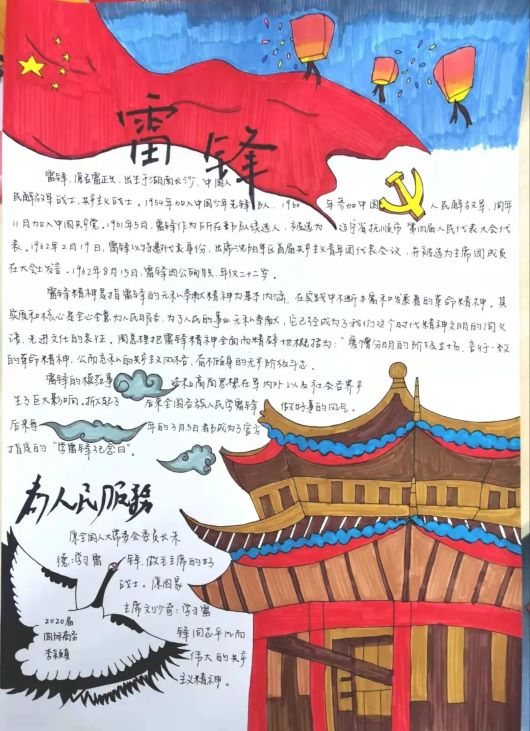 雷锋
雷锋，原名雷正兴，出生于湖南长沙，中国人
民解放军战士，共产主义战士。1954年加入中国少年先锋队，1960年参加中国人民解放军，同年
11月加入中国共产党。1961年5月，雷锋作为所在部队候选人，被选为辽宁省抚顺市第四届人民代表大会代
表。1962年2月19日，雷锋以特邀代表身份，出席沈阳军区首届共产主义青年团代表会议，并被选为主席团成员
在大会上发言。1962年8月15日，雷锋因公殉职，年仅二十二岁。
雷锋精神是指雷锋的无私奉献精神为基本内涵，在实践中不断丰富和发展着的革命精神，其
实质和核心是全心全意为人民服务，为了人民的事业无私奉献，它已经成为了我们这个时代精神文明的同义
语，先进文化的表征。周总理把雷锋精神全面而精辟地概括为："爱憎分明的阶级立场、言行一致
的革命精神，公而忘私的共产主义风格，奋不顾身的无产阶级斗志。
雷锋的模范事
崇高思想在军内外以及社会各界产
生了巨大影响，
后来全国各族人民学雷锋
做好事的风气。
后来每
年的3月5日都成为了官方
指定的"学雷锋纪念日"。
为人民服務
原全国人大常委会委员长朱
德：学习雷锋，做毛主席的好
战士。原国家
主席刘少奇：学习雷
锋同志平凡而
伟大的共产
主义精神。
2020届
国际商务